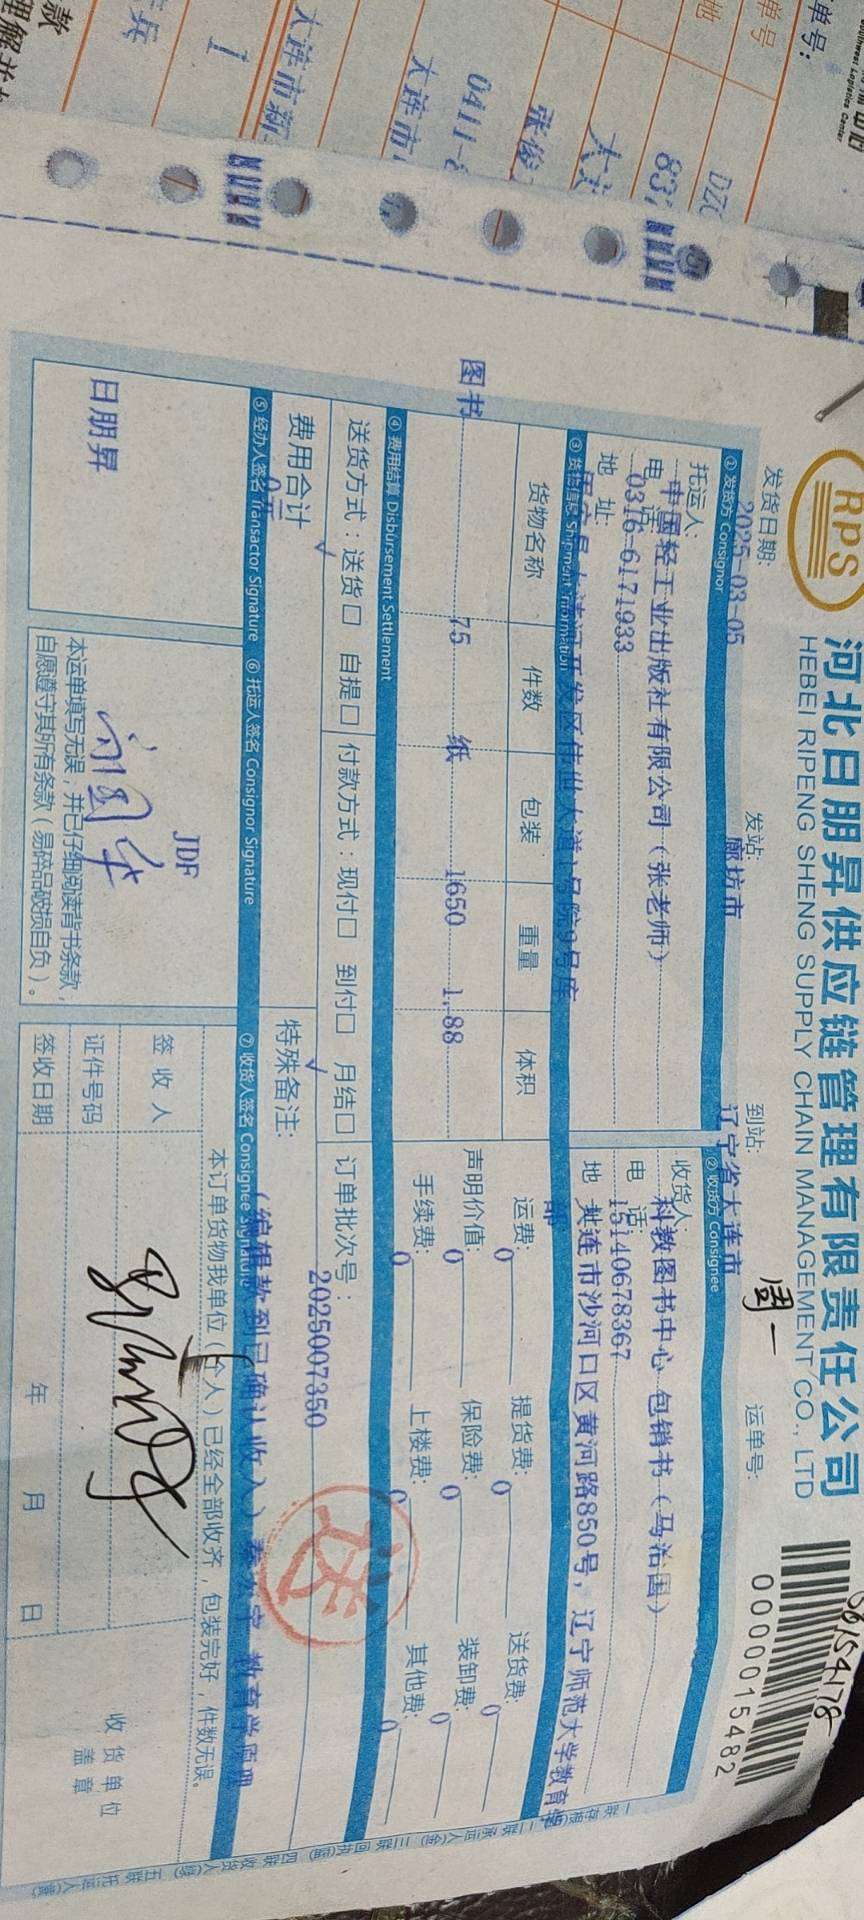 RPS
河北日朋昇供应链管理有限责任公司
HEBEI RIPENG SHENG SUPPLY CHAIN MANAGEMENT CO., LTD
38154178
周一
0000015482
发货日期:
2025-03-05
发站:
廊坊市
到站:
辽宁省大连市
运单号:
① 发货方 Consignor
② 收货方 Consignee
托运人:
中国轻工业出版社有限公司(张老师)
电 话:
0316-6171933
地 址:
开发区伟业大道1号院9号库
收货人:
科教图书中心 包销书(马治国)
电 话:
15140678367
地 址:
大连市沙河口区黄河路850号, 辽宁师范大学教育学
部
③ 货物信息 Shipment Information
货物名称 件数 包装 重量 体积
图书 75 纸 1650 1.88
运费: 0 提货费: 0 送货费: 0
声明价值: 0 保险费: 0 装卸费: 0
手续费: 0 上楼费: 0 其他费: 0
④ 费用结算 Disbursement Settlement
送货方式: 送货□ 自提□ 付款方式: 现付□ 到付□ 月结□
订单批次号:
2025007350
费用合计
0元
特殊备注:
(编辑款到已确认收入) 教育学原理
送
⑤ 经办人签名 Transactor Signature
⑥ 托运人签名 Consignor Signature
⑦ 收货人签名 Consignee Signature
日朋昇
JDF
本运单填写无误,并已仔细阅读背书条款,
自愿遵守其所有条款(易碎品破损自负)。
本订单货物我单位(个人)已经全部收齐,包装完好,件数无误。
签收人
证件号码
签收日期
年 月 日
收货单位
盖章
一联存根(白) 二联承运人(金) 三联回执(蓝) 四联收货人(绿) 五联托运人(黄)
单号:
单号
DZ
83
大
张俊
0411-
大连市
大连市新
1
兵
款